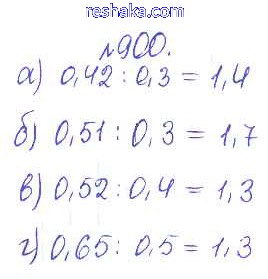 reshaka.com
№900.
а) 0,42 : 0,3 = 1,4
б) 0,51 : 0,3 = 1,7
в) 0,52 : 0,4 = 1,3
г) 0,65 : 0,5 = 1,3